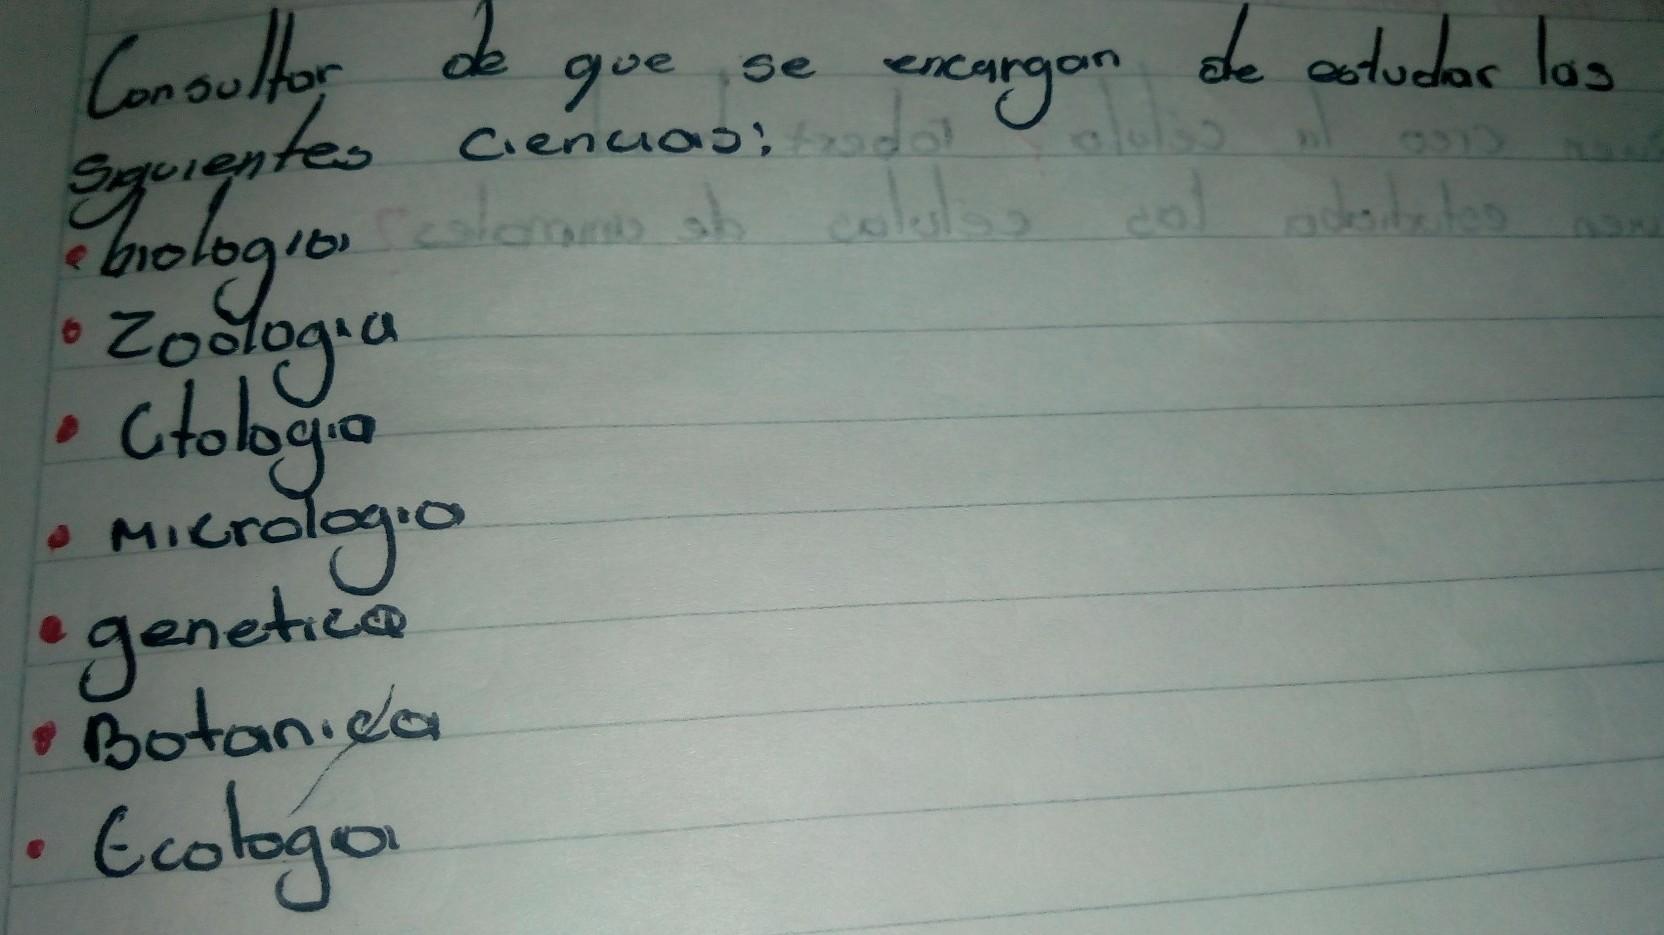 Consultar de que se encargan de estudiar las
siguientes ciencias:
• biologia
• Zoologia
• Citologia
• Micrologia
• genetica
• Botanica
• Ecologia